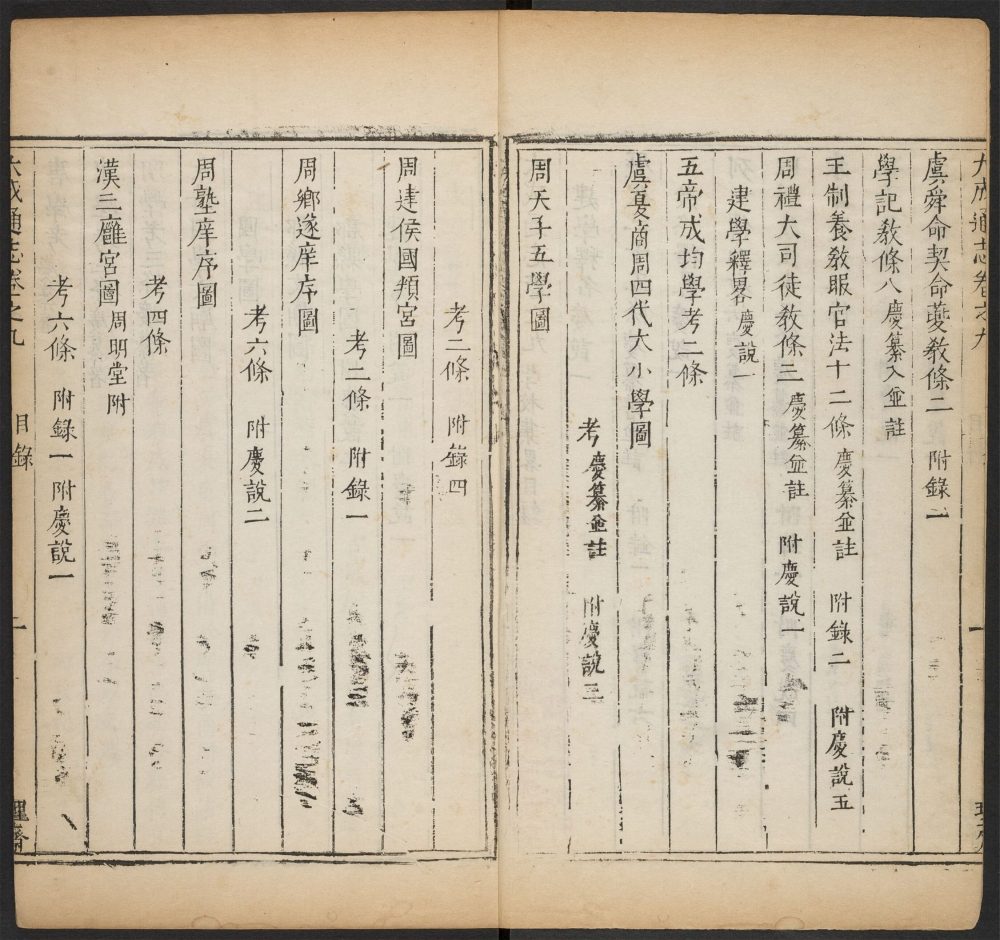 大成通志卷之九
虞舜命契命夔敎條二 附錄一
學記敎條八慶纂入並註
王制養敎眂官法十二條慶纂並註 附錄二 附慶說五
周禮大司徒敎條三慶纂並註 附慶說一
建學釋畧慶說一
五帝成均學考二條
虞夏商周四代大小學圖
考慶纂並註 附慶說三
周天子五學圖
考二條 附錄四
周建侯國頖宮圖
考二條 附錄一
周鄉遂庠序圖
考六條 附慶說二
周塾庠序圖
考四條
漢三廱宮圖周明堂附
考六條 附錄一 附慶說一
大成通志卷之九 目錄 二 理齋